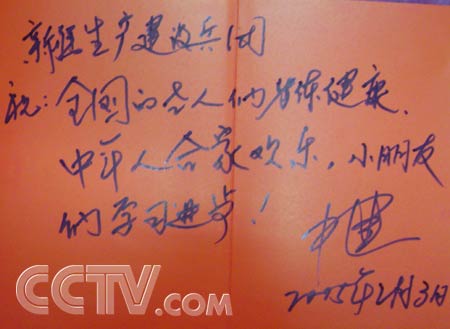 新疆生产建设兵团
祝:全国的老人们身体健康,
中年人合家欢乐,小朋友
们学习进步!
2005年2月3日
CCTV.com